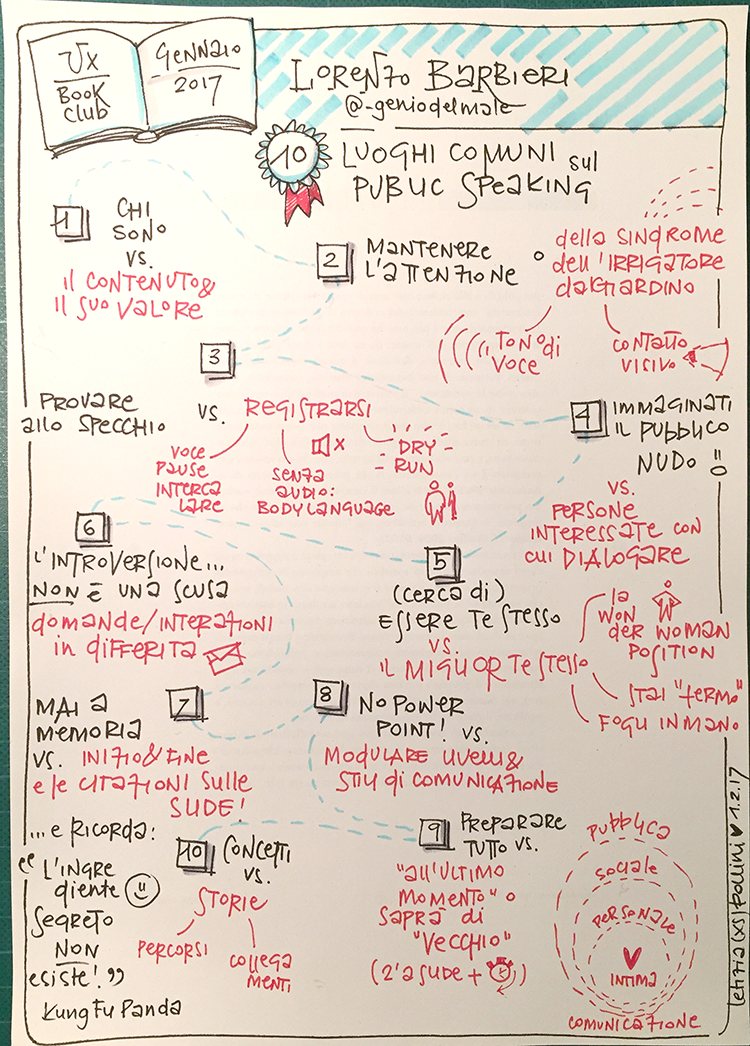 UX
BOOK
CLUB
GENNAIO
2017
LORENZO BARBIERI
@_geniodelmale
10
LUOGHI COMUNI sul
PUBLIC SPEAKING
1
CHI
SONO
VS.
il CONTENUTO &
il SUO VALORE
2
MANTENERE
L'ATTENZIONE
o
della SINDROME
dell'IRRIGATORE
da GIARDINO
TONO di
VOCE
CONTATTO
VISIVO
3
PROVARE
allo SPECCHIO
VS.
REGISTRARSI
VOCE
PAUSE
INTERCA
LARE
SENZA
AUDIO:
BODY LANGUAGE
DRY
RUN
4
IMMAGINATI
IL PUBBLICO
NUDO
VS.
PERSONE
INTERESSATE CON
CUI DIALOGARE
5
(CERCA di)
ESSERE TE STESSO
VS.
IL MIGLIOR TE STESSO
la
WON
DER WOMAN
POSITION
STAI "fermo"
FOGLI IN MANO
6
L'INTROVERSIONE...
NON È UNA SCUSA
domande/INTERAZIONI
in diFFERITA
7
MAI A
MEMORIA
VS. INIZIO & FINE
e le CITAZIONI SULLE
SLIDE!
8
NO POWER
POINT! VS.
MODULARE LIVELLI &
STILI di COMUNICAZIONE
9
PREPARARE
TUTTO VS.
"all'ULTIMO
MOMENTO" o
SAPRÀ di
"VECCHIO"
(2' a SLIDE +
)
pubblica
sociale
PERSONALE
INTIMA
COMUNICAZIONE
10
CONCETTI
VS.
STORIE
PERCORSI
COLLEGA
MENTI
...e RICORDA:
"L'INGRE
diente
SEGRETO
NON
esiste!"
KUNG FU PANDA
letizia (xs) bollini ♥ 1.2.17